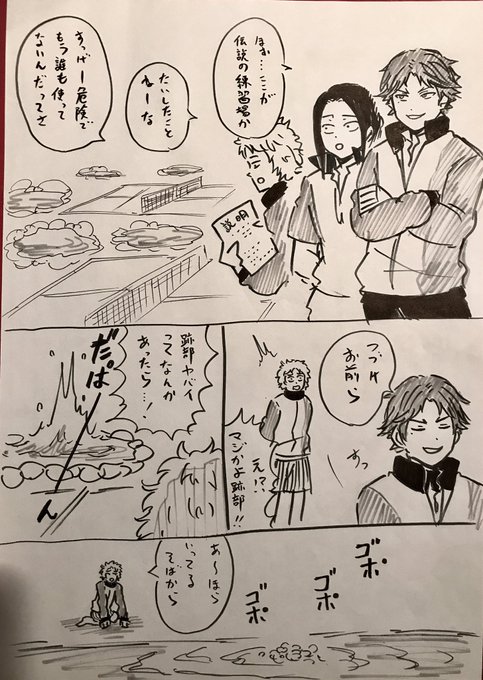 ほぉ…ここが
伝説の練習場か
たいしたこと
ねーな
すっげー危険で
もう誰も使って
ないんだってさ
説明
つづけ
お前ら
すっ
え!?
マジかよ跡部!!
跡部ヤバイ
ってなんか
あったら…!
だぱーん
ゴポ
ゴポ
ゴポ
あ〜ほら
いってる
そばから